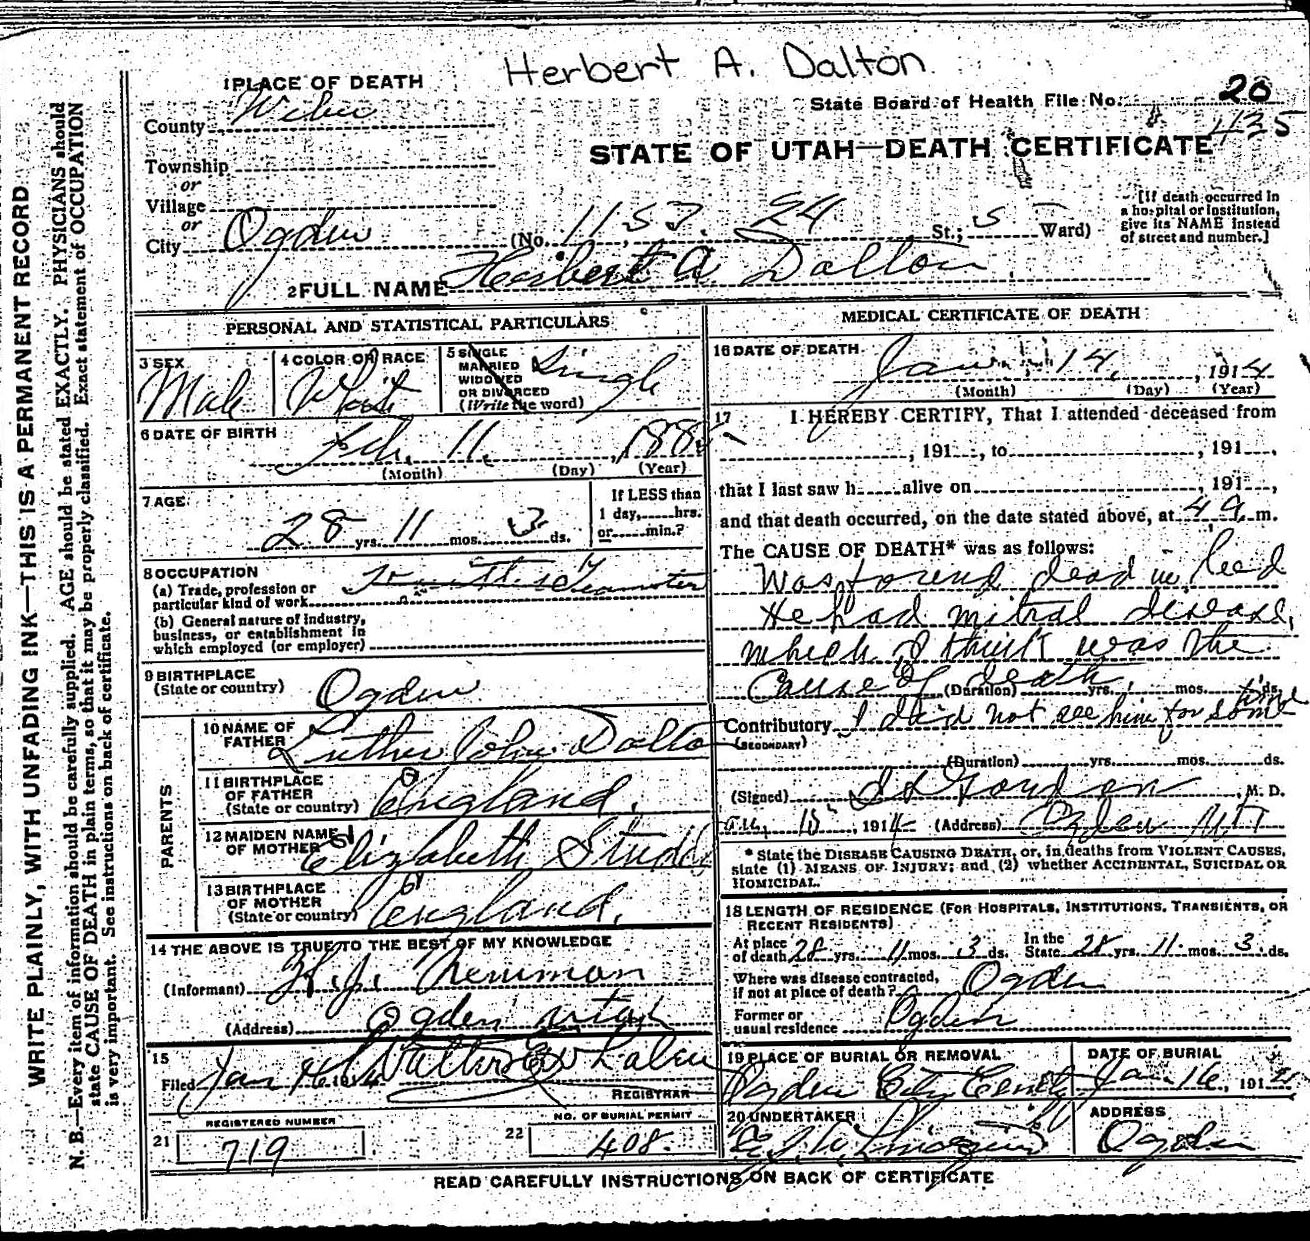 Herbert A. Dalton
1 PLACE OF DEATH
County Weber
Township
or
Village
or
City Ogden (No. 1153. 24 St.; 5 Ward)
State Board of Health File No. 20
435
STATE OF UTAH—DEATH CERTIFICATE
[If death occurred in
a hospital or institution,
give its NAME instead
of street and number.]
2 FULL NAME Herbert A Dalton
PERSONAL AND STATISTICAL PARTICULARS
3 SEX
Male
4 COLOR OR RACE
White
5 SINGLE
MARRIED
WIDOWED
OR DIVORCED
(Write the word)
Single
6 DATE OF BIRTH
Feb. 11. 188
(Month) (Day) (Year)
7 AGE
28 yrs. 11 mos. 3 ds.
If LESS than
1 day, hrs.
or min.?
8 OCCUPATION
(a) Trade, profession or
particular kind of work Teamster
(b) General nature of Industry,
business, or establishment in
which employed (or employer)
9 BIRTHPLACE
(State or country) Ogden
PARENTS
10 NAME OF
FATHER Luther John Dalton
11 BIRTHPLACE
OF FATHER
(State or country) England.
12 MAIDEN NAME
OF MOTHER Elizabeth Studd
13 BIRTHPLACE
OF MOTHER
(State or country) England.
14 THE ABOVE IS TRUE TO THE BEST OF MY KNOWLEDGE
(Informant) H. J. Newman
(Address) Ogden Utah
15
Filed Jan 16 1914 Walter E Whalen
REGISTRAR
REGISTERED NUMBER
21 719
NO. OF BURIAL PERMIT
22 408.
MEDICAL CERTIFICATE OF DEATH
16 DATE OF DEATH
Jan. 14, 1914
(Month) (Day) (Year)
17 I HEREBY CERTIFY, That I attended deceased from
, 191 , to , 191 ,
that I last saw h alive on , 191 ,
and that death occurred, on the date stated above, at 4 a. m.
The CAUSE OF DEATH* was as follows:
Was found dead in bed
He had mitral disease,
which I think was the
Cause of death,
(Duration) yrs. mos. ds.
Contributory I did not see him for some time
(SECONDARY)
(Duration) yrs. mos. ds.
(Signed) Gordon, M. D.
Jan. 15, 1914 (Address) Ogden UT
* State the DISEASE CAUSING DEATH, or, in deaths from VIOLENT CAUSES,
state (1) MEANS OF INJURY; and (2) whether ACCIDENTAL, SUICIDAL OR
HOMICIDAL.
18 LENGTH OF RESIDENCE (FOR HOSPITALS, INSTITUTIONS, TRANSIENTS, OR
RECENT RESIDENTS)
At place
of death 28 yrs. 11 mos. 3 ds. In the
State 28 yrs. 11 mos. 3 ds.
Where was disease contracted,
if not at place of death? Ogden
Former or
usual residence Ogden
19 PLACE OF BURIAL OR REMOVAL
Ogden City Cemety
DATE OF BURIAL
Jan. 16, 191
20 UNDERTAKER
ADDRESS
Ogden
READ CAREFULLY INSTRUCTIONS ON BACK OF CERTIFICATE
WRITE PLAINLY, WITH UNFADING INK—THIS IS A PERMANENT RECORD
N. B.—Every item of information should be carefully supplied. AGE should be stated EXACTLY. PHYSICIANS should
state CAUSE OF DEATH in plain terms, so that it may be properly classified. Exact statement of OCCUPATION
is very important. See instructions on back of certificate.